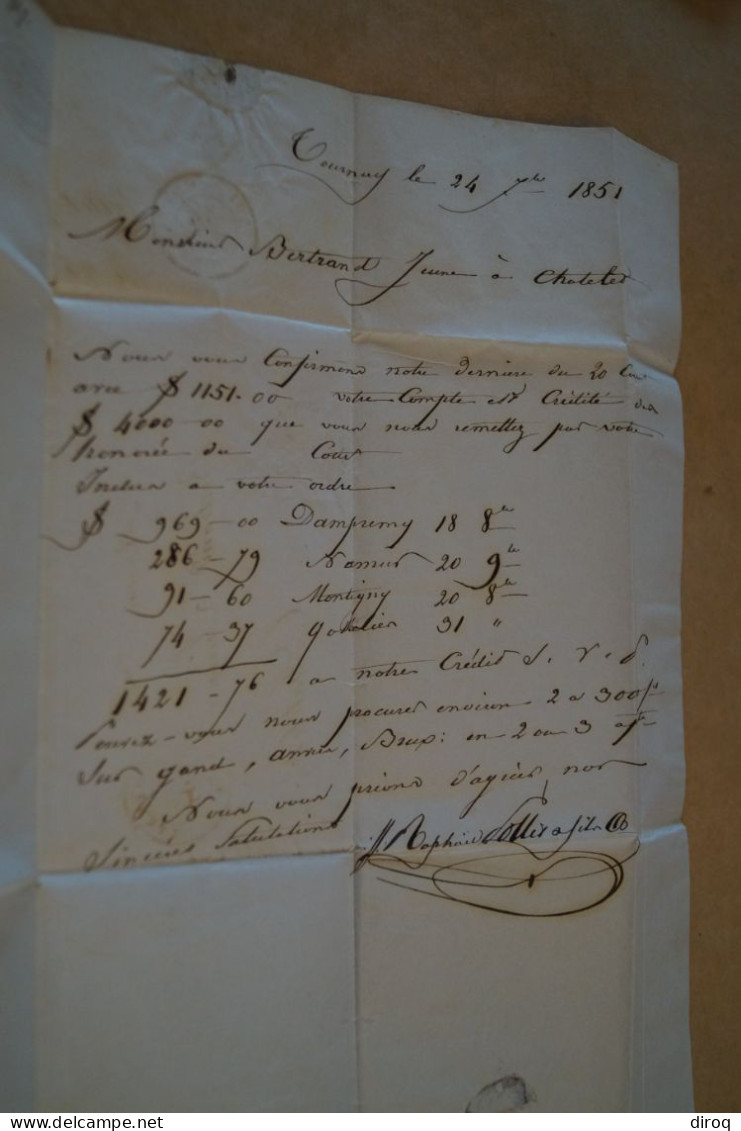 Tournay le 24 7bre 1851
Monsieur Bertrand Jeune à Chatelet
Nous vous Confirmons notre dernière du 20 Cou
avec $ 1151.00 votre Compte est Crédité des
$ 4000-00 que vous nous remettez par votre
honorée du Cour
Inclus a votre ordre
$ 969-00 Dampremy 18 8bre
286-79 Namur 20 9bre
91-60 Montigny 20 8bre
74-37 31 "
1421-76 a notre Crédit S. V. P.
Pouvez-vous nous procurer environ 2 a 300
Sur gand, anvers, Brux: en 2 ou 3
Nous vous prions d'agréer nos
Sincères Salutations
Raphaël & fils
diroq